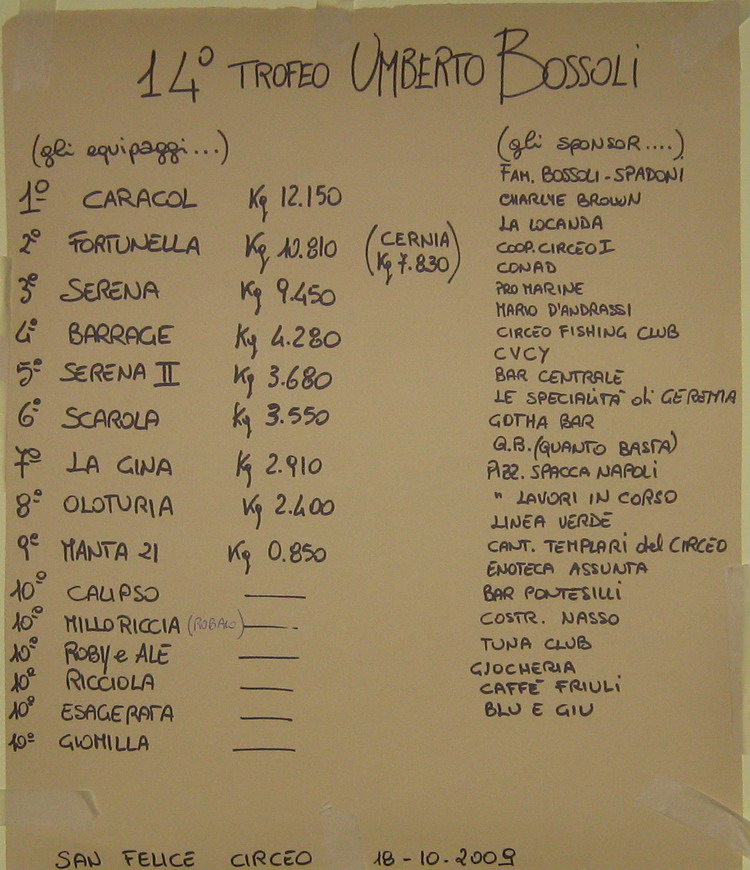 14° TROFEO UMBERTO BOSSOLI
(gli equipaggi...)
1° CARACOL Kg 12.150
2° FORTUNELLA Kg 10.810 (CERNIA Kg 7.830)
3° SERENA Kg 9.450
4° BARRAGE Kg 4.280
5° SERENA II Kg 3.680
6° SCAROLA Kg 3.550
7° LA GINA Kg 2.910
8° OLOTURIA Kg 2.400
9° MANTA 21 Kg 0.850
10° CALIPSO —
10° MILLO RICCIA (ROBALO) —
10° ROBY e ALE —
10° RICCIOLA —
10° ESAGERATA —
10° GIOMILLA —
(gli SPONSOR....)
FAM. BOSSOLI - SPADONI
CHARLYE BROWN
LA LOCANDA
COOP. CIRCEO I
CONAD
PRO MARINE
MARIO D'ANDRASSI
CIRCEO FISHING CLUB
CVCY
BAR CENTRALE
LE SPECIALITÀ di GEREMIA
GOTHA BAR
Q.B. (QUANTO BASTA)
PIZZ. SPACCA NAPOLI
" LAVORI IN CORSO
LINEA VERDE
CANT. TEMPLARI del CIRCEO
ENOTECA ASSUNTA
BAR PONTESILLI
COSTR. NASSO
TUNA CLUB
GIOCHERIA
CAFFÈ FRIULI
BLU E GIU
SAN FELICE CIRCEO 18-10-2009